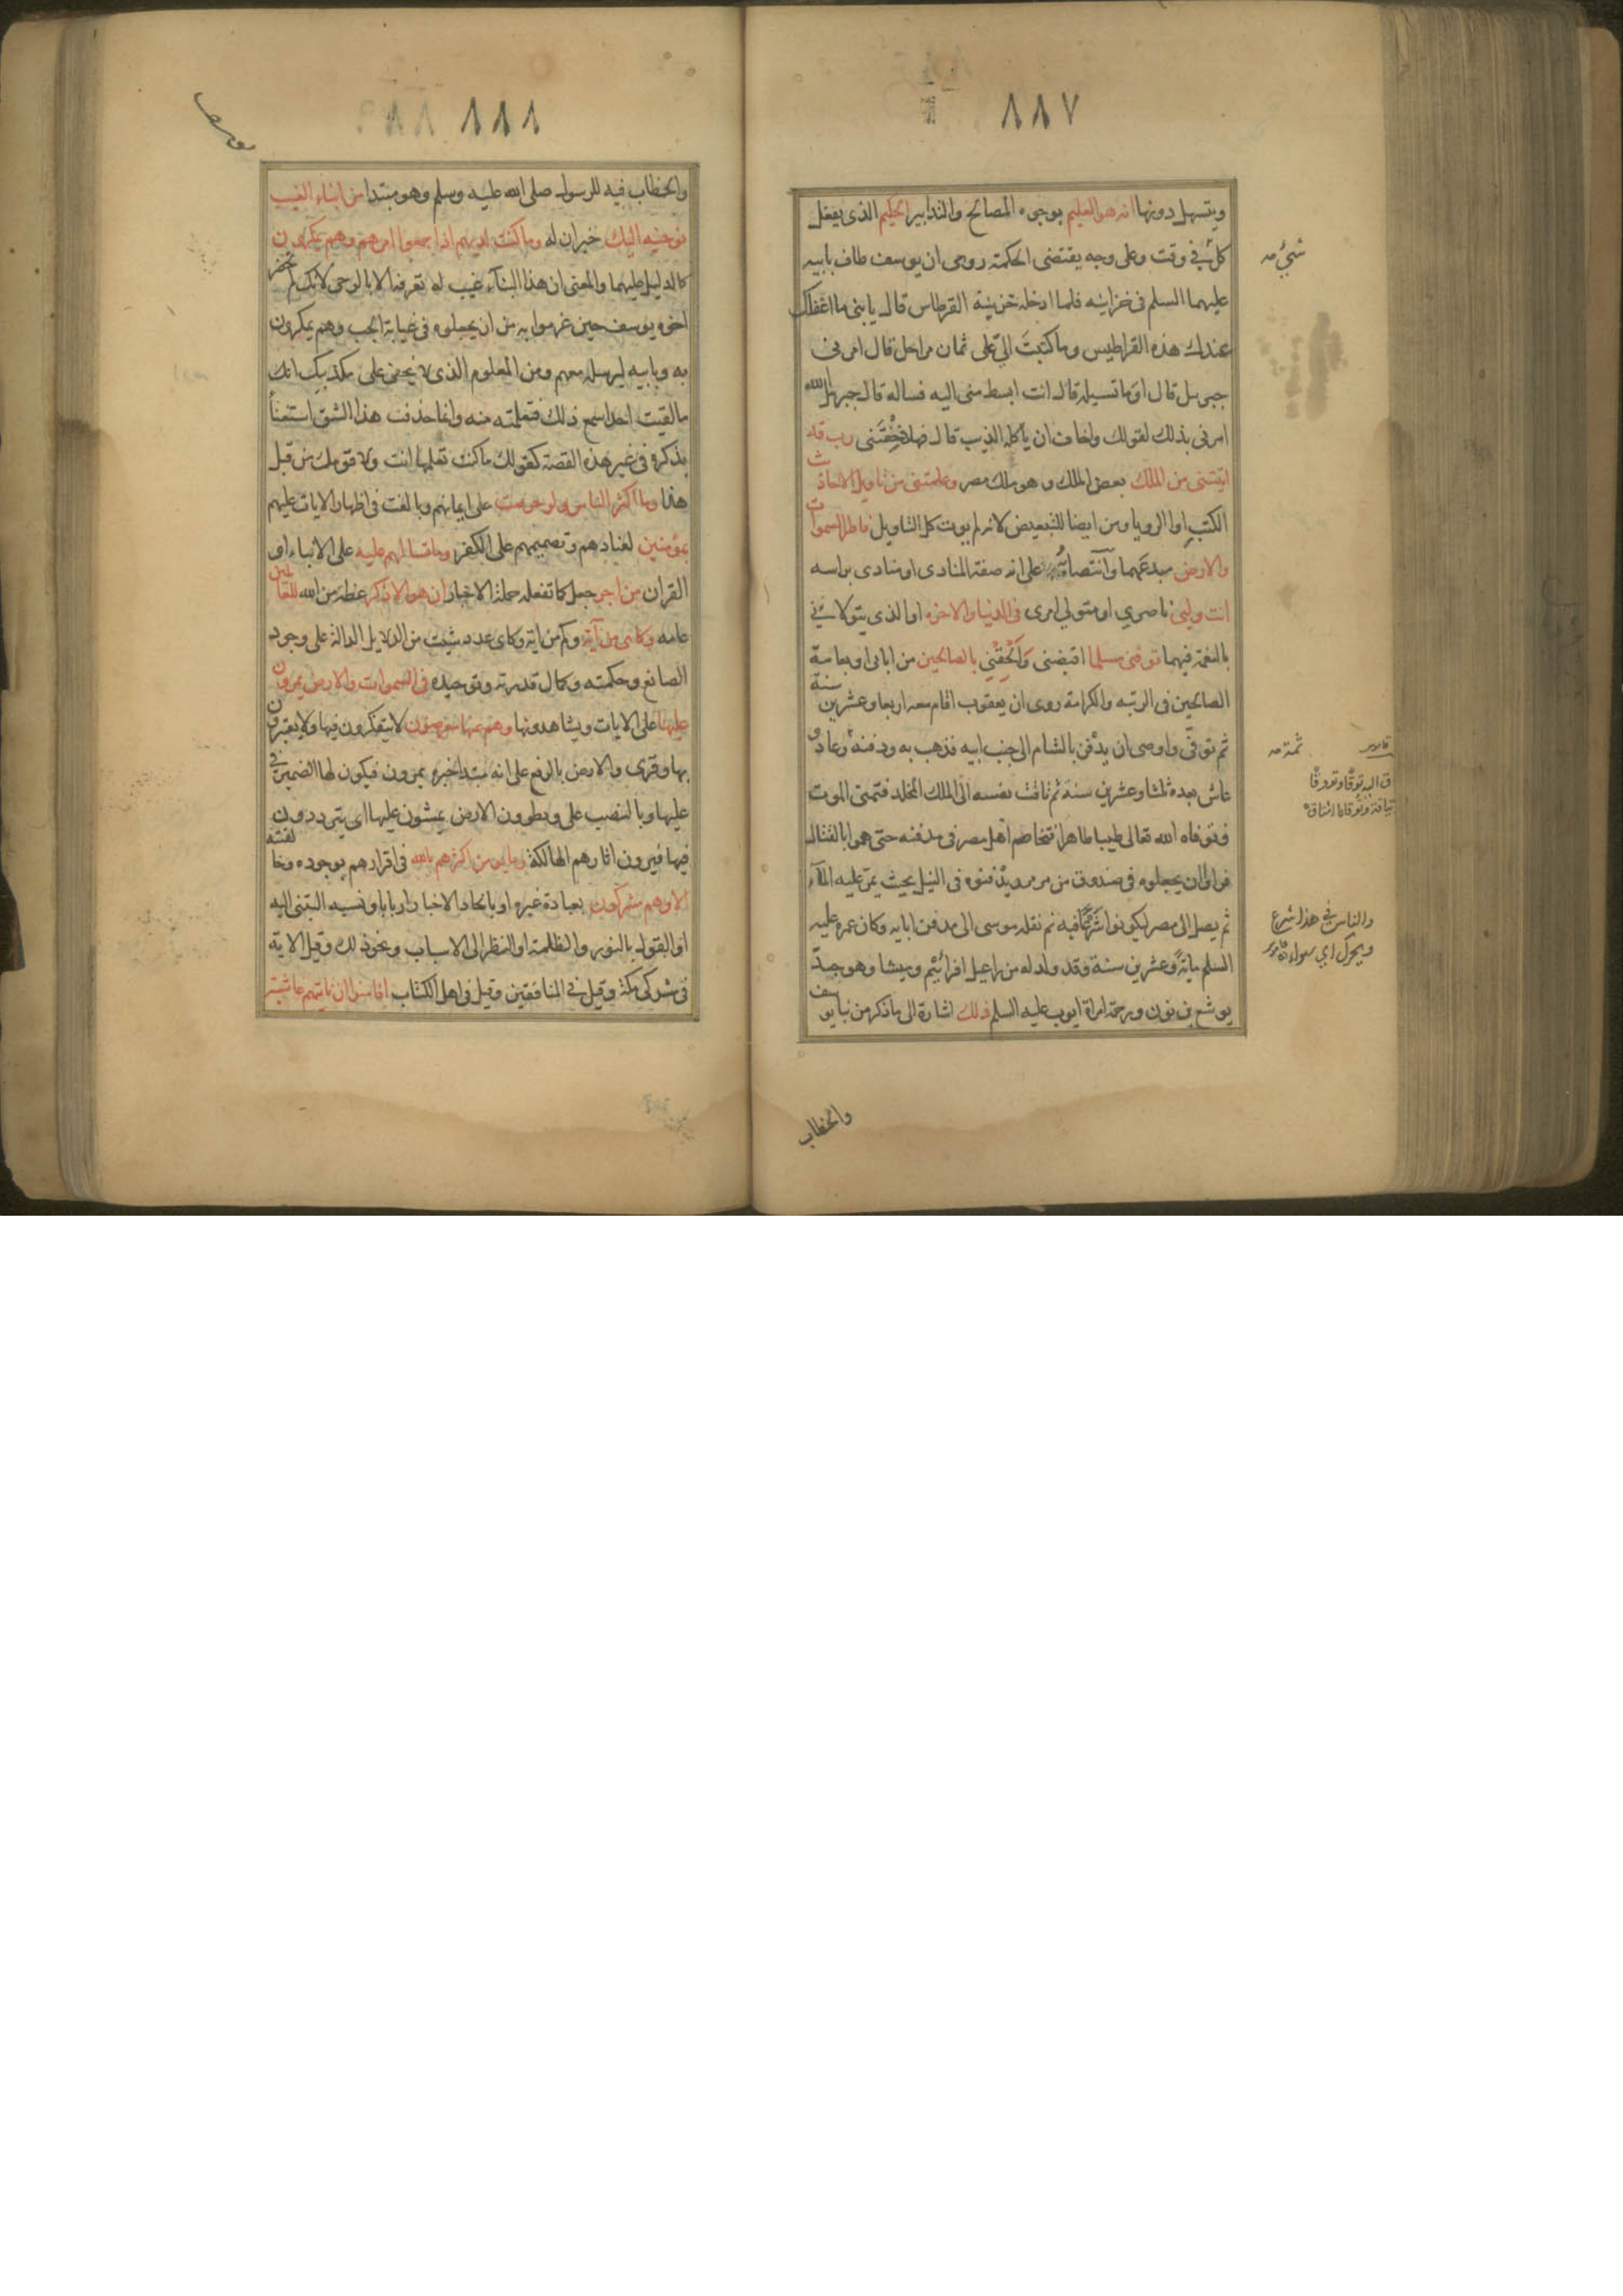 ٨٨٧
ويتسهل دونها انه هو العليم بوجوه المصالح والتدابير الحكيم الذى يفعل
كل شئ فى وقت وعلى وجه يقتضى الحكمة روى ان يوسف طاف بابيه
عليهما السلم فى خزاينه فلما ادخله خزينة القرطاس قال يا بنى ما اغفلك
عندك هذه القراطيس وما كتبتَ الىّ على ثمان مراحل قال امرنى
جبرىل قال اوما تسيله قال انت ابسط منى اليه فساله قال جبرىل الله
امرنى بذلك لقولك واخاف ان ياكله الذيب قال فهلا خِفْتَنى رب قد
اتيتنى من الملك بعض الملك وهو ملك مصر وعلمتنى من تاويل الاحاديث
الكتبِ او الرويا ومن ايضا للتبعيض لانه لم يوت كل التاويل فاطر السموات
والارض مبدعهما وانتصابُهُ على انه صفة المنادى او منادى براسه
انت وليى ناصرى او متولى امرى فى الدنيا والاخرة او الذى يتولانى
بالنعمة فيهما توفنى مسلما اقبضنى وَاَلْحِقْنِى بالصالحين من ابائى او بعامة
الصالحين فى الرتبه والكرامة روى ان يعقوب اقام معه اربعا وعشرين سنة
ثم توفىّ واوصى ان يدْفن بالشام الى جنب ابيه فذهب به ودفنه ثم وعاد و
عاش بعده ثلثا وعشرين سنة ثم تاقت نفسه الى الملك المخلد فتمنى الموت
فتوفاه الله تعالى طيبا طاهرا فتخاصم اهل مصر فى مدفنه حتى هموا بالقتال
فراوا ان يجعلوه فى صندوق من مرمر ويدْفنوه فى النيل بحيث يمرّ عليه المآء
ثم يصل الى مصر ليكونوا شَرْعًا فيه ثم نقله موسى الى مدفن ابايه وكان عمره عليه
السلم ماية وعشرين سنة وقد ولد له من راعيل افرائيْم وميشا وهو جدّ
يوشع بن نون ورحمة امراة ايوب عليه السلم ذلك اشارة الى ما ذكر من نبا يوسف
شئ صه
ثمة صه
ق اليه توقًا وتووقًا
والناس فى هذا شرع
ويحرك اى سواء
والخطاب
٨٨٨
والخطاب فيه للرسول صلى الله عليه وسلم وهو مبتدا من انباء الغيب
نوحيه اليك خبران له وما كنت لديهم اذ اجمعوا امرهم وهم يمكرون
كالدليل عليهما والمعنى ان هذا النبآء غيب له تعرفه الا بالوحى لانك لم تحضر
اخوة يوسف حين عزموا به من ان يجعلوه فى غيابة الجب وهم يمكرون
به وبابيه ليرسله معهم ومن المعلوم الذى لا يخفى على مكذبيك انك
ما لقيت احدا سمع ذلك فتعلمته منه وانما حذفت هذا الشق استغنآ
بذكره فى غير هذه القصة كقولك ما كنت تعلمها انت ولا قومك من قبل
هذا وما اكثر الناس ولو حرصت على ايمانهم وبالغت فى اظهار الايات عليهم
بمؤمنين لعنادهم وتصميمهم على الكفر وما تسالهم عليه على الانباء او
القران من اجر جعل كما تفعله حملة الاخبار ان هو الا ذكر عظة من الله للعالمين
عامه وكاىن من آية وكم من اية وكاى عدد شيت من الدلايل الدالة على وجود
الصانع وحكمته وكمال قدرته وتوحيده فى السموات والارض يمرون
عليها على الايات ويشاهدونها وهم عنها معرضون لا يتفكرون فيها ولا يعتبرون
بها وقرى والارض بالرفع على انه مبتدا خبره يمرون فيكون لها الضمير فى
عليها وبالنصب على ويطوون الارض يمشون عليها اى يترددون
فيها فيرون اثارهم الهالكة وما يومن اكثرهم بالله فى اقرارهم بوجوده وخالقته
الا وهم مشركون بعبادة غيره او باتخاد الاخبار اربابا ونسبه التبنى اليه
او القول بالنور والظلمة او النظر الى الاسباب ونحو ذلك وقيل الاية
فى مشركى مكة وقيل فى المنافقين وقيل فى اهل الكتاب افامنوا ان تاتيهم غاشية